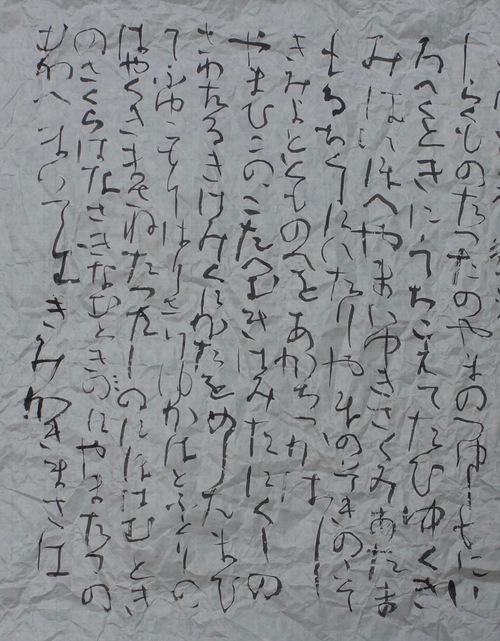 しらくものたつたのやまのつゆしもにい
ろつくときにうちこえてたひゆくき
みはいほへやまいゆきさくみあたま
もるちくしにいたりやまのそきののそ
きみよととものへをあかちつかはし
やまひこのこたへむきはみたにくくの
さわたるきはみくにかたをめしたまひ
てふゆこもりはるさりゆかはとふとりの
はやくきまさねたつたちのにほはむとき
のさくらはなさきなむときにやまたつの
むかへまいてむきみかきまさは